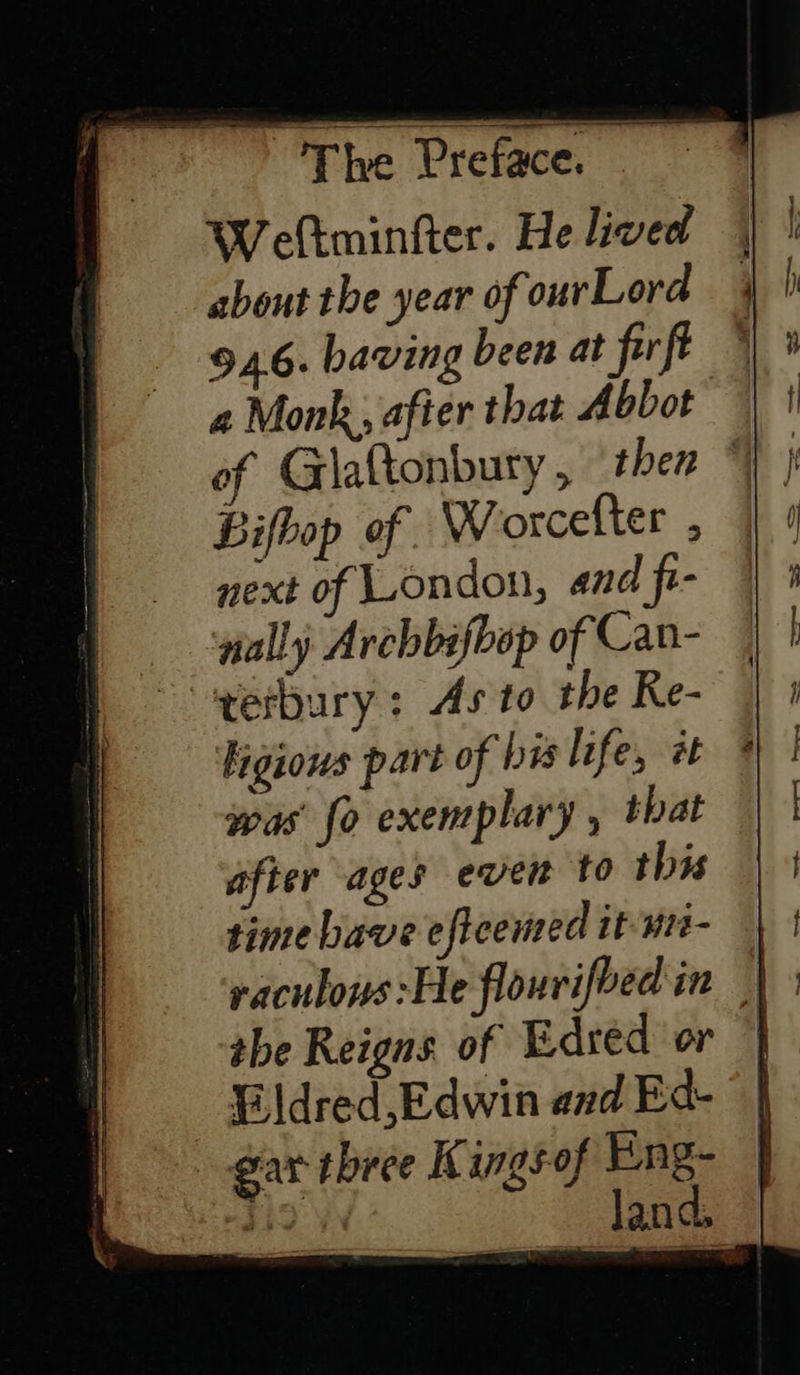 The Preface.
Weſtminſter. He lived
about the year of our Lord
946. having been at firſt
a Monk, after that Abbot
of Glaſtonbury, then
Biſhop of Worceſter,
next of London, and fi-
nally Archbiſhop of Can-
terbury: As to the Re-
ligious part of his life, it
was ſo exemplary, that
after ages even to this
time have eſteemed it mi-
raculous: He flouriſhed in
the Reigns of Edred or
Eldred, Edwin and Ed-
gar three Kings of Eng-
land.